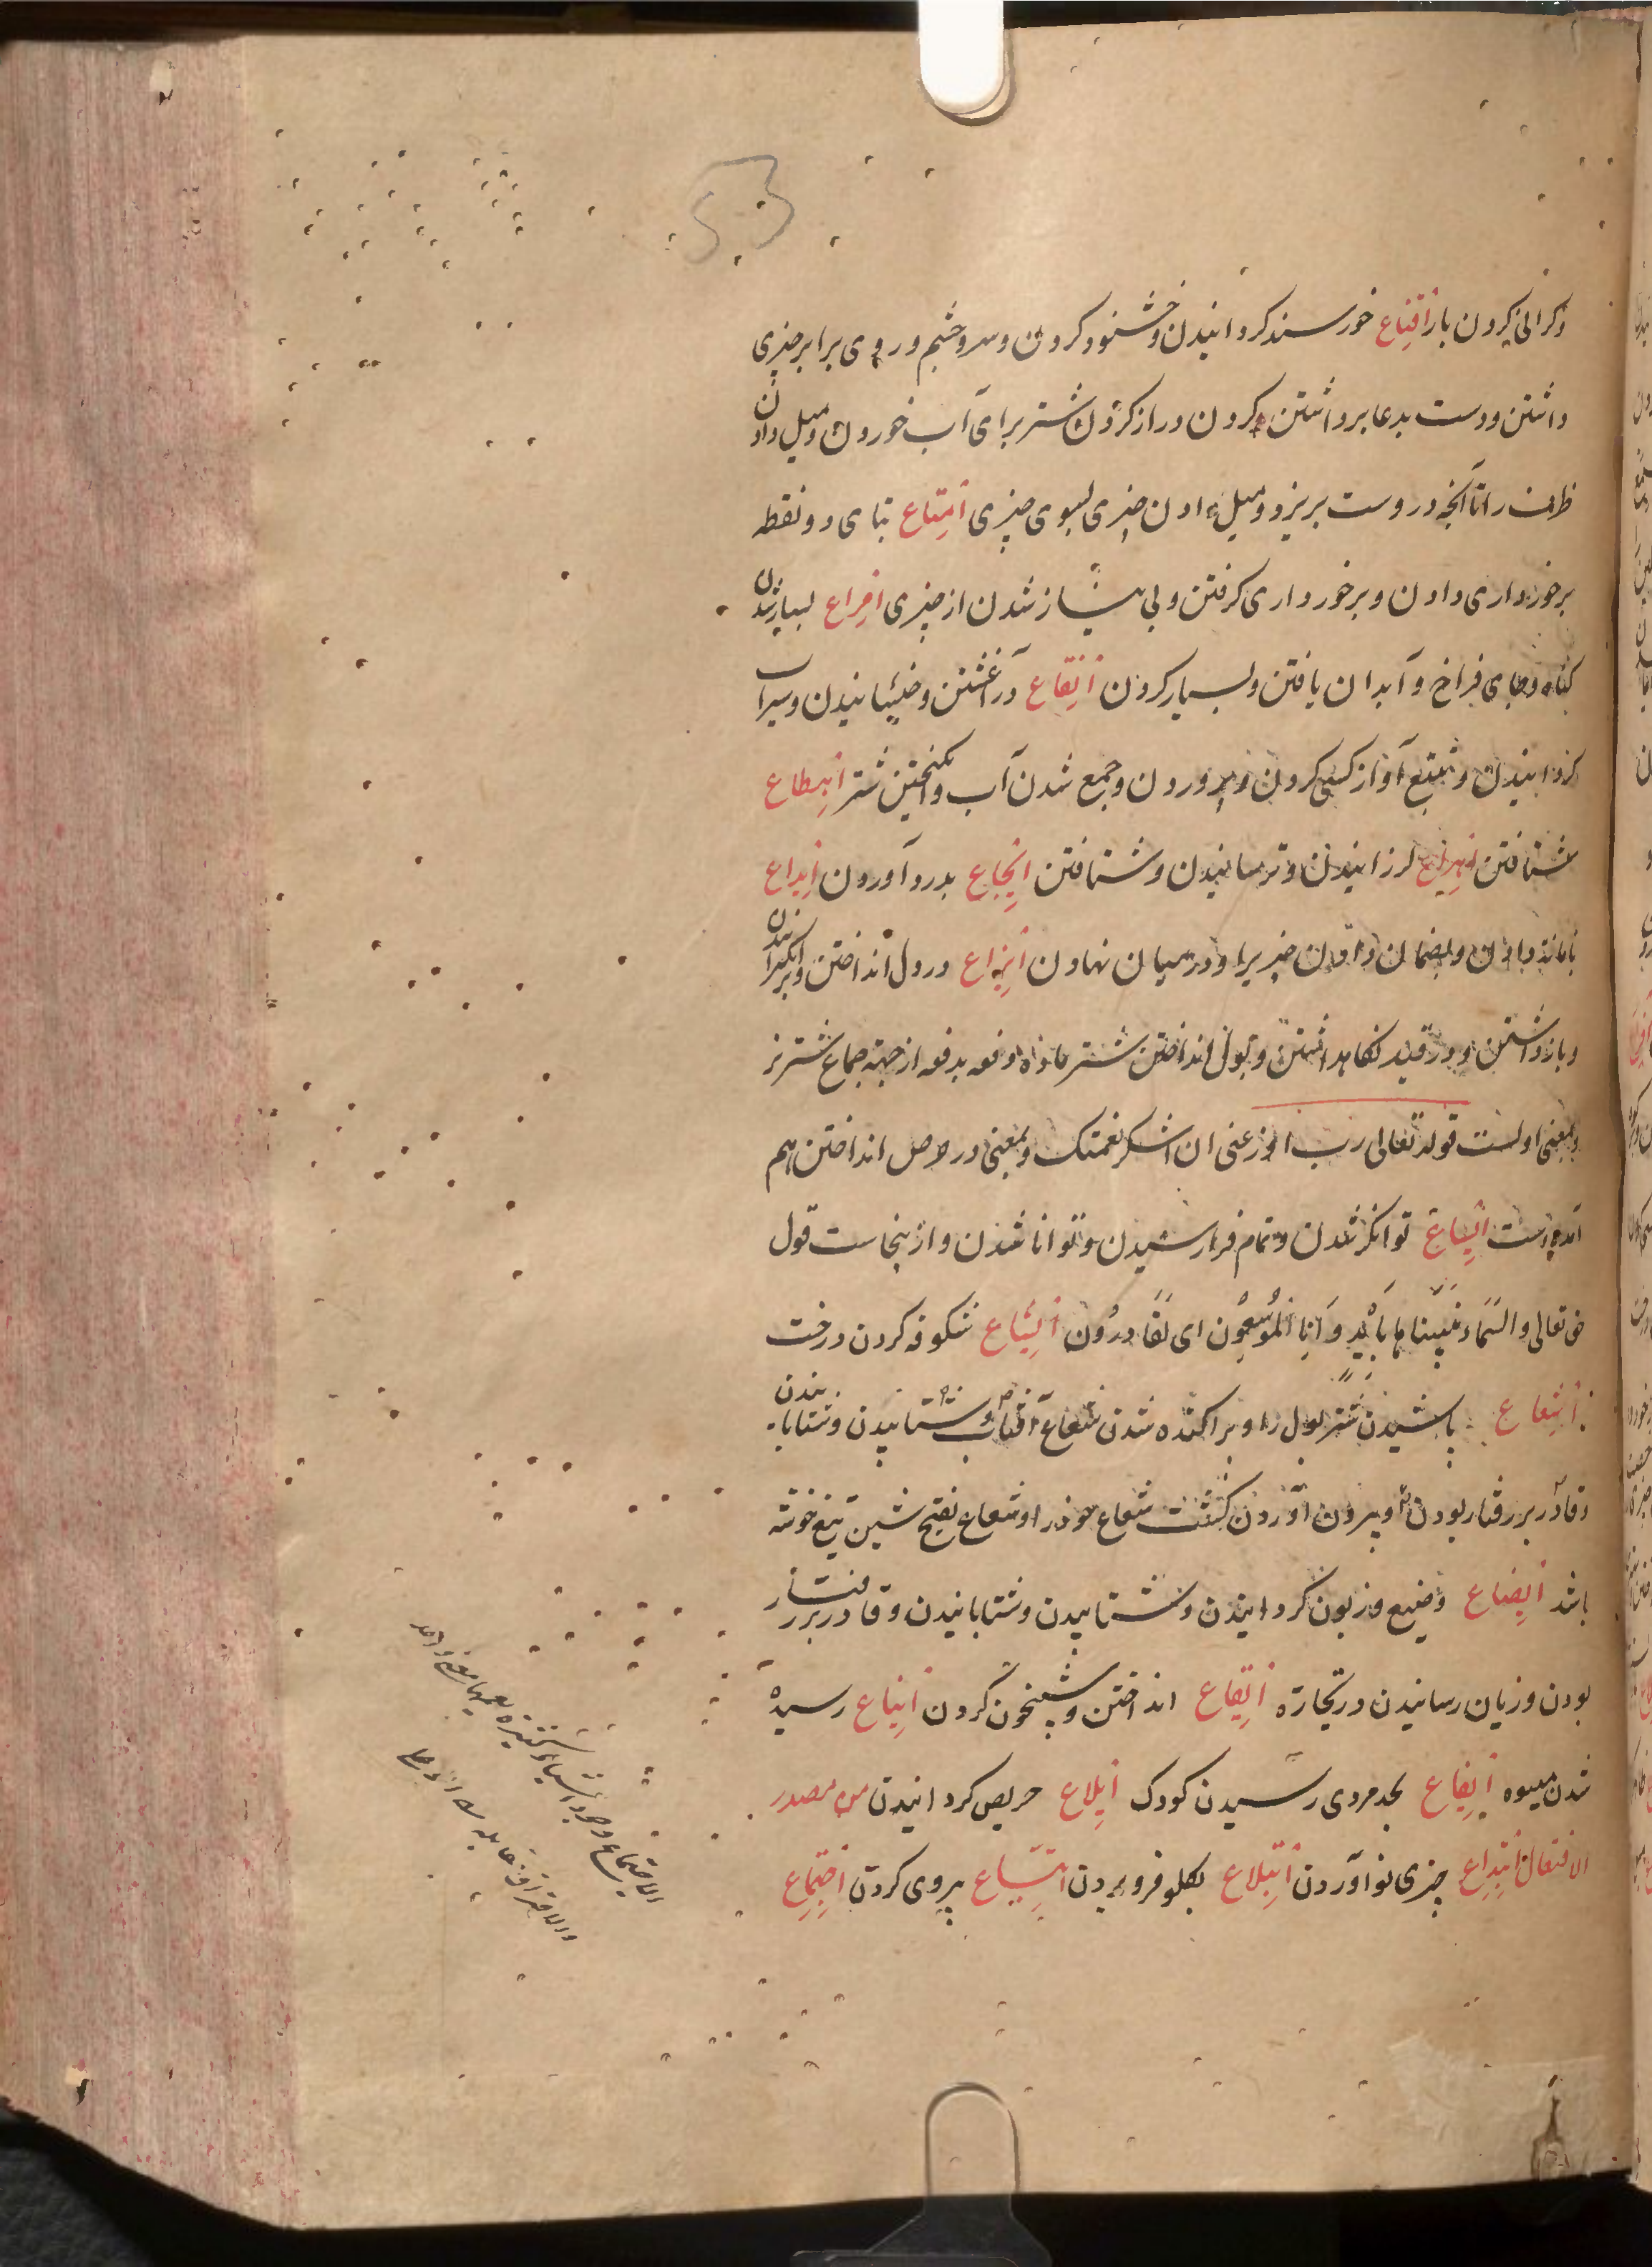 و گرانی کردن بار اقناع خورسند گردانیدن و خشنود کردن و سر و چشم و روی برابر چیزی
داشتن و دست بدعا برداشتن و کردن دراز کردن شتر برای آب خوردن و میل دادن
ظرف را تا آنچه دروست بریزد و میل دادن چیزی بسوی چیزی امتاع بتای دو نقطه
برخورداری دادن و برخورداری گرفتن و بی نیاز شدن از چیزی امراع بسیار شدن
گیاه و جای فراخ و آبدان یافتن و بسیار کردن انقاع در آغشتن و خیسانیدن و سیراب
گردانیدن و آواز کسی کردن و پروردن و جمع شدن آب و شتر اهطاع
شتافتن اهراع لرزانیدن و ترسانیدن و شتافتن ایجاع بدرد آوردن ایداع
بامانت دادن و چیزیرا و درمیان نهادن ایزاع در دل انداختن و برانگیزانیدن
و باز داشتن و در قید نگاه داشتن و بول انداختن شتر ماده دفعه بدفعه از جهة جماع شتر نر
و بمعنی اولست قوله تعالی رب اوزعنی ان اشکر نعمتک و بمعنی در دل انداختن هم
آمده است ایساع توانگر شدن و تمام فرا رسیدن و توانا شدن و از ینجاست قول
حق تعالی و السماء بنیناها بأید و انا لموسعون ای لقادرون ایشاع شکوفه کردن درخت
ایشعاع پاشیدن شتر بول را و پراکنده شدن شعاع آفتاب و شتابیدن و شتابانیدن
و قادر بر رفتار بودن و بیرون آوردن کشت شعاع خود را و شعاع بفتح شین تیغ خوشه
باشد ایضاع وضیع و زبون گردانیدن و شتابیدن و شتابانیدن و قادر بر رفتار
بودن و زیان رسانیدن در تجارة ایقاع انداختن و شبیخون کردن ایناع رسیده
شدن میوه ایفاع بحد مردی رسیدن کودک ایلاع حریص گردانیدن من مصدر
الافتعال ابتداع چیزی نو آوردن ابتلاع بگلو فرو بردن اتباع پیروی کردن اجتماع
الاجتماع وجود اشیاء کثیرة یعمها معنی واحد
والافتراق